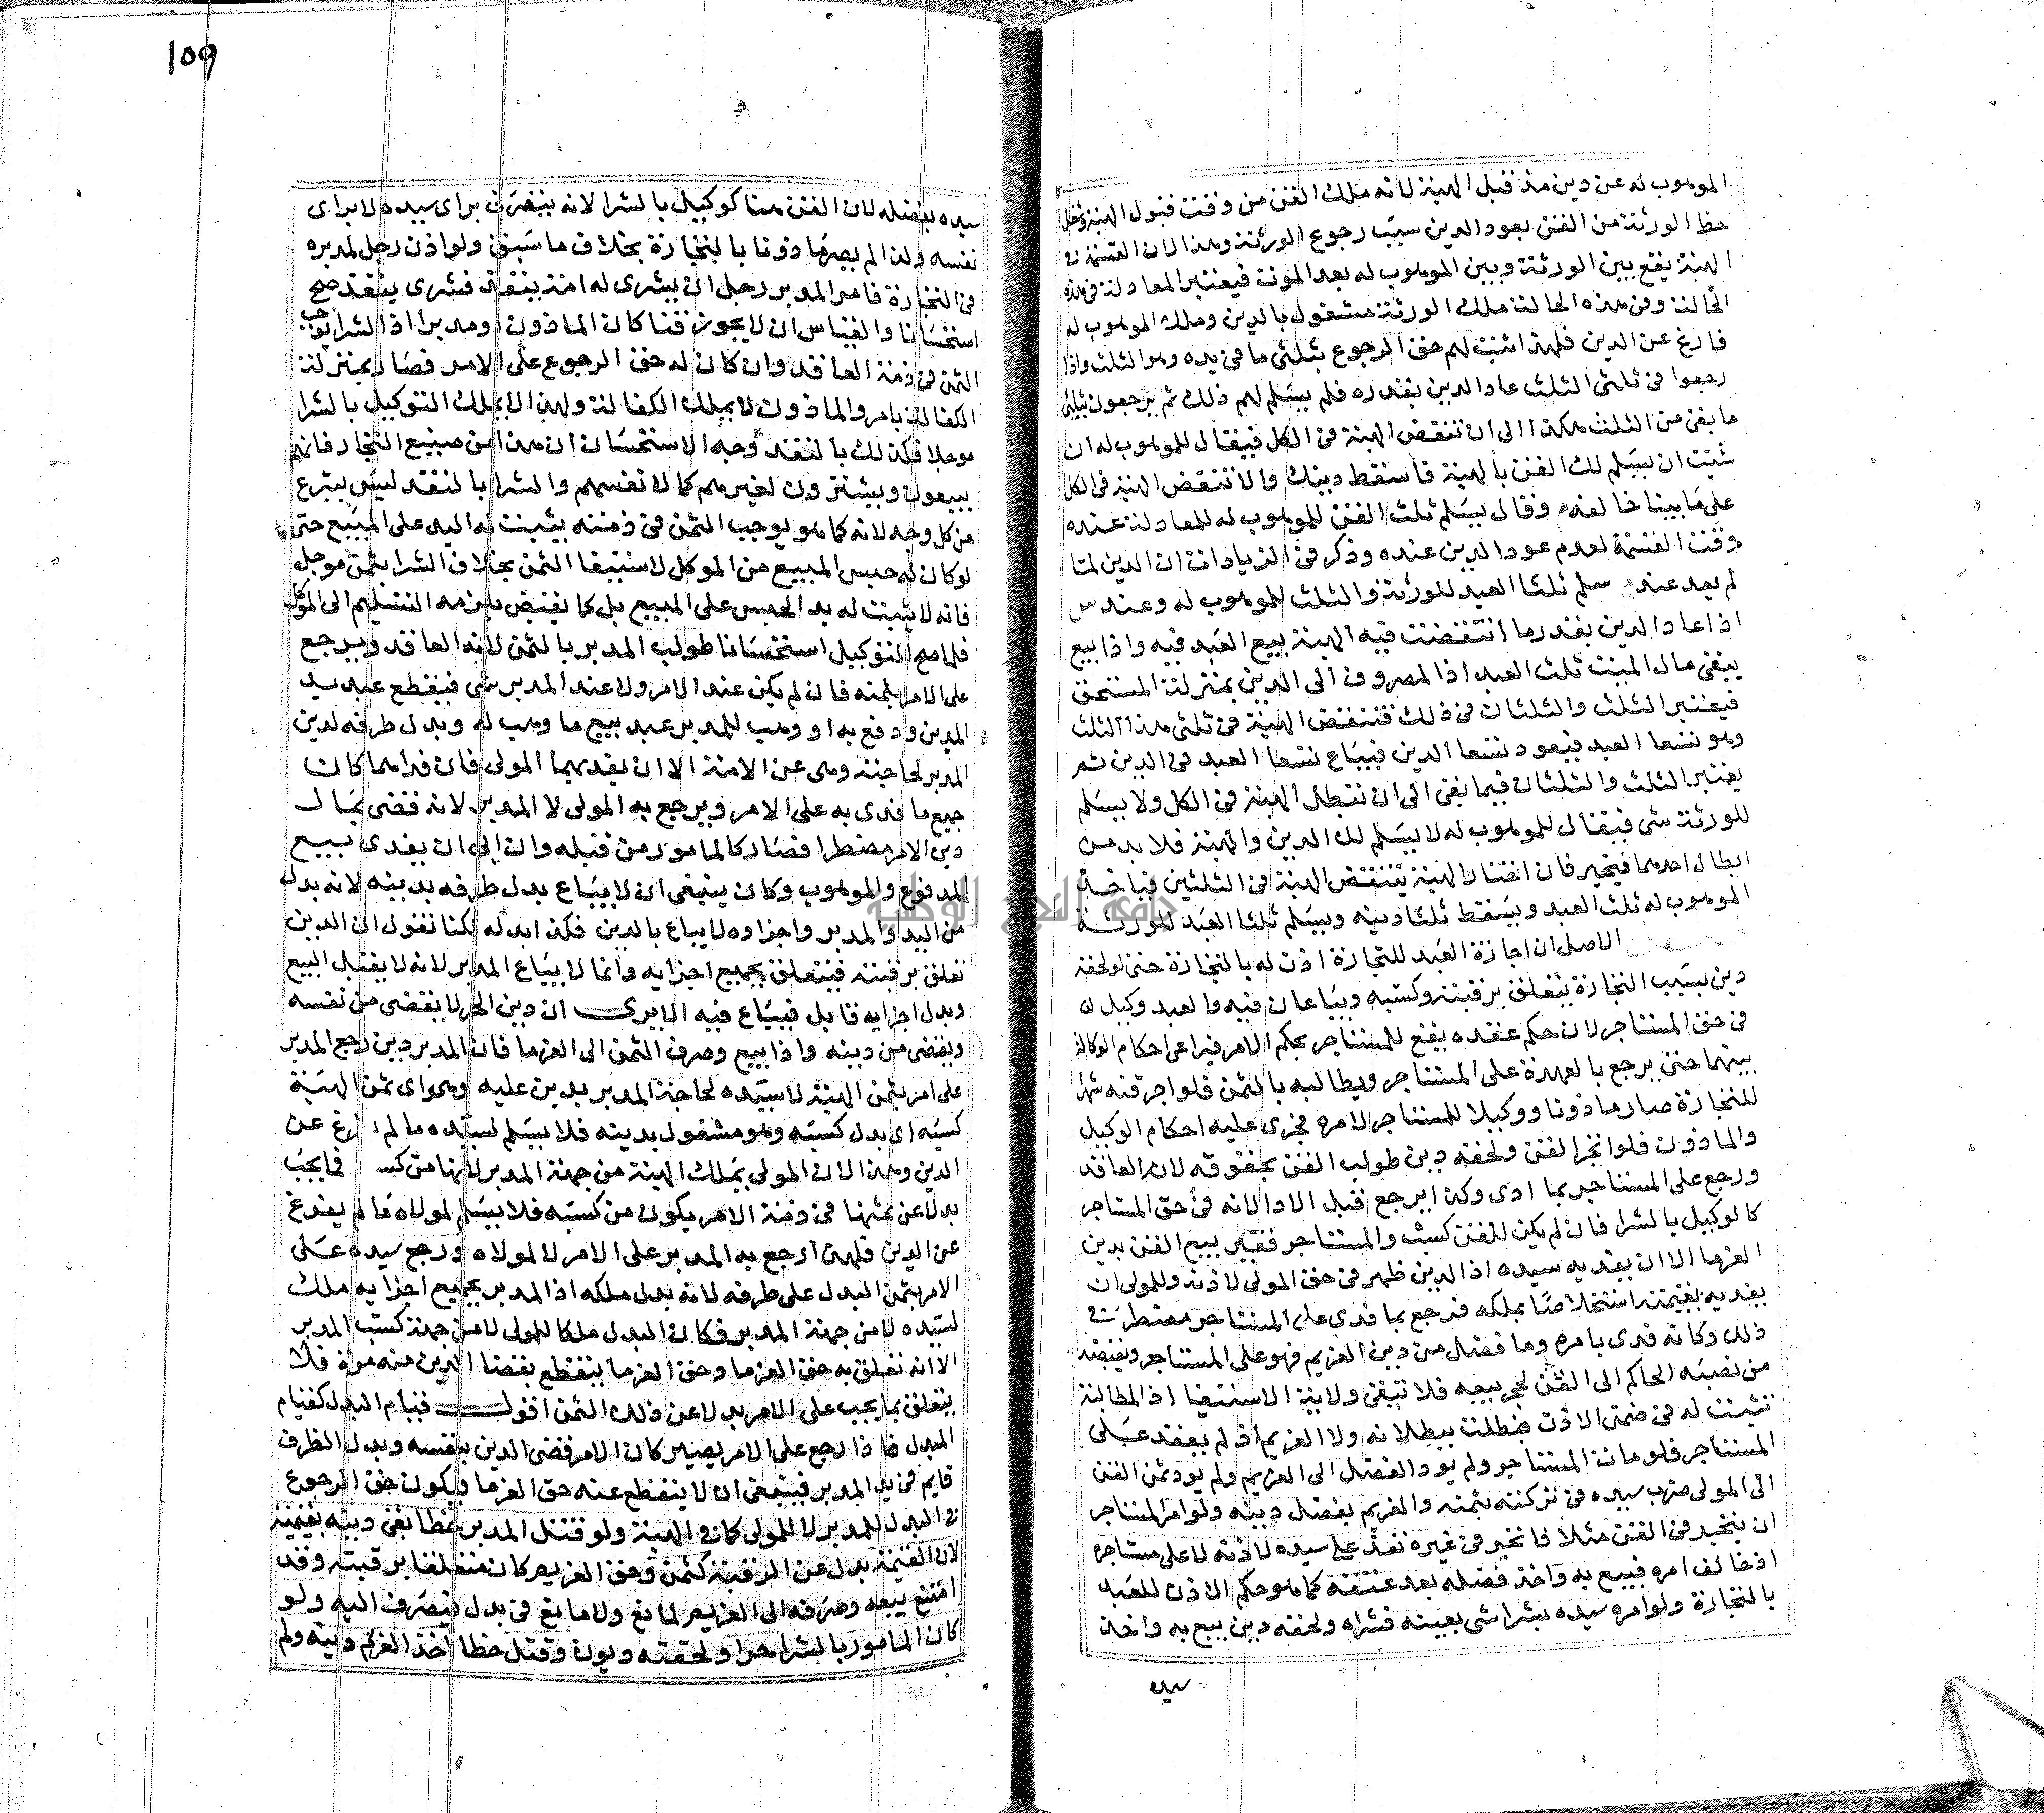 الموهوب له عن دين منذ قبل الهبة لانه ملك القن من وقت قبول الهبة وشغل
حظ الورثة من القن بعود الدين سبب رجوع الورثة وهذا لان القسمة في
الهبة يقع بين الورثة وبين الموهوب له بعد الموت فيعتبر المعادلة في هذه
الحالة وفي هذه الحالة ملك الورثة مشغول بالدين وملك الموهوب له
فارغ عن الدين فلهذا اثبت لهم حق الرجوع بثلثي ما في يده وهو الثلث واذا
رجعوا في ثلثي الثلث عاد الدين بقدره فلم يسلم لهم ذلك ثم يرجعون بثلثي
ما بقي من الثلث هكذا الى ان تنقض الهبة في الكل فيقال للموهوب له ان
شيت ان يسلم لك القن بالهبة فاسقط دينك والا تنتقض الهبة في الكل
على ما بينا خالفه وقال يسلم ثلث القن للموهوب له للمعادلة عنده
وقت القسمة لعدم عود الدين عنده وذكر في الزيادات ان الدين لما
لم يعد عند سلم ثلثا العبد للورثة والثلث للموهوب له وعند س
اذا عاد الدين بقدر ما انتقضت فيه الهبة بيع العبد فيه واذا بيع
يبقى مال الميت ثلث العبد اذ المصروف الى الدين بمنزلة المستحق
فيعتبر الثلث والثلثان في ذلك فتنتقض الهبة في ثلثي هذا الثلث
وهو تسعا العبد فيعود تسعا الدين فيباع تسعا العبد في الدين ثم
يعتبر الثلث والثلثان فيما بقي الى ان تبطل الهبة في الكل ولا يسلم
للورثة شي فيقال للموهوب له لا يسلم لك الدين والهبة فلا بد من
ابطال احدهما فيخير فان اختار الهبة تنتقض الهبة في الثلثين فياخذ
الموهوب له ثلث العبد ويسقط ثلثا دينه ويسلم ثلثا العبد للورثة
الاصل ان اجازة العبد للتجارة اذن له بالتجارة حتى لو لحقه
دين بسبب التجارة يتعلق برقبته وكسبه ويباعان فيه والعبد وكيل له
في حق المستاجر لان حكم عقده يقع للمستاجر بحكم الامر فيراعى احكام الوكالة
بينهما حتى يرجع بالعهدة على المستاجر ويطالبه بالثمن فلو اجر قنه شهرا
للتجارة صار ماذونا ووكيلا للمستاجر لامره فجرى عليه احكام الوكيل
والماذون فلو اتجر القن ولحقه دين طولب القن بحقوقه لانه العاقد
ورجع على المستاجر بما ادى وكذا يرجع قبل الادا لانه في حق المستاجر
كالوكيل بالشرا فان لم يكن للقن كسب والمستاجر فقير بيع القن بدين
الغرما الا ان يفديه سيده اذ الدين ظهر في حق المولى لاذنه وللمولى ان
يفديه بقيمته استخلاصا بملكه فرجع بما فدى على المستاجر مضطر في
ذلك وكانه فدى بامره وما فضل من دين الغريم فهو على المستاجر ويقبضه
من نصبه الحاكم الى القن لحجر بيعه فلا تبقى ولاية الاستيفا اذ المطالبة
تثبت له في ضمن الاذن فبطلت ببطلانه ولا الغريم اذ لم يعقد على
المستاجر فلو مات المستاجر ولم يود الفضل الى الغريم ولم يود ثمن القن
الى المولى ضرب سيده في تركته بثمنه والغريم بفضل دينه ولو امر المستاجر
ان يتجر في القن مثلا فاتجر في غيره نفذ على سيده لاذنه لا على مستاجره
اذ خالف امره فبيع به واخذ فضله بعد عتقه كما هو حكم الاذن للعبد
بالتجارة ولو امره سيده بشرا شي بعينه فشراه ولحقه دين بيع به واخذ
سيده
109
سيده بفضله لان القن هنا كوكيل بالشرا لانه يتصرف براى سيده لا براى
نفسه ولذا لم يصر ماذونا بالتجارة بخلاف ما سبق ولو اذن رجل لمدبره
في التجارة فامر المدبر رجل ان يشرى له امة بنقد فشرى ينفذ صح
استحسانا والقياس ان لا يجوز قنا كان الماذون او مدبرا اذ الشرا يوجب
الثمن في ذمة العاقد وان كان له حق الرجوع على الامر فصار بمنزلة
الكفالة بامر والماذون لا يملك الكفالة ولهذا لا يملك التوكيل بالشرا
موجلا فكذلك بالنقد وجه الاستحسان ان هذا من صنيع التجار فانهم
يبيعون ويشترون لغيرهم كما لانفسهم والشرا بالنقد ليس بتبرع
من كل وجه لانه كما هو يوجب الثمن في ذمته يثبت له اليد على المبيع حتى
لو كان له حبس المبيع من الموكل لاستيفا الثمن بخلاف الشرا بثمن موجل
فانه لا يثبت له يد الحبس على المبيع بل كما يقبض يلزمه التسليم الى الموكل
فلما صح التوكيل استحسانا طولب المدبر بالثمن لانه العاقد ويرجع
على الامر بثمنه فان لم يكن عند الامر ولا عند المدبر شي فيقطع عبد يد
المدبر ودفع به او وهب للمدبر عبد بيع ما وهب له وبدل طرفه لدين
المدبر لحاجته وهى عن الامة الا ان يفديهما المولى فان فداهما كان
جميع ما فدى به على الامر ويرجع به المولى لا المدبر لانه قضى بمال
دين الامر مضطرا فصار كالمامور من قبله وان ابى ان يفدى بيع
المدفوع والموهوب وكان ينبغي ان لا يباع بدل طرفه بدينه لانه بدل
من اليد والمدبر واجزاوه لا يباع بالدين فكذا بدله لكنا نقول ان الدين
تعلق برقبته فيتعلق بجميع اجزايه وانما لا يباع المدبر لانه لا يقبل البيع
وبدل اجزايه قابل فيباع فيه الا يرى ان دين الحر لا يقضى من نفسه
ويقضى من ديته واذا بيع وصرف الثمن الى الغرما فان المدبر رجع المدبر
على امر بثمن الهبة لا سيده لحاجة المدبر بدين عليه وهو اى ثمن الهبة
كسبه اى بدل كسبه وهو مشغول بدينه فلا يسلم لسيده ما لم عن
الدين وهذا لان المولى يملك الهبة من جهة المدبر لانها من كسبه فما يجب
بدلا عن ثمنها في ذمة الامر يكون من كسبه فلا يسلم لمولاه ما لم يفرغ
عن الدين فلهذا رجع به المدبر على الامر لا مولاه ورجع سيده على
الامر بثمن البدل على طرفه لانه بدل ملكه اذ المدبر بجميع اجزايه ملك
لسيده لا من جهة المدبر فكان البدل ملكا للمولى لا من جهة كسب المدبر
الا انه تعلق به حق الغرما وحق الغرما ينقطع بقضا الدين منه مرة فلا
يتعلق بما يجب على الامر بدلا عن ذلك الثمن اقول قيام البدل كقيام
المبدل فاذا رجع على الامر يصير كان الامر قضى الدين بنفسه وبدل الطرف
قايم في يد المدبر فينبغي ان لا ينقطع عنه حق الغرما ويكون حق الرجوع
في البدل للمدبر لا للمولى كما في الهبة ولو قتل المدبر خطا بقي دينه بقيمته
لان القيمة بدل عن الرقبة كثمن وحق الغريم كان متعلقا برقبته وقد
امتنع بيعه وصرفه الى الغريم لمانع ولا مانع في بدل فيصرف اليه ولو
كان المامور بالشرا حرا ولحقته ديون وقتل خطا اخذ الغرم ديته ولم
جامعة النجاح الوطنية